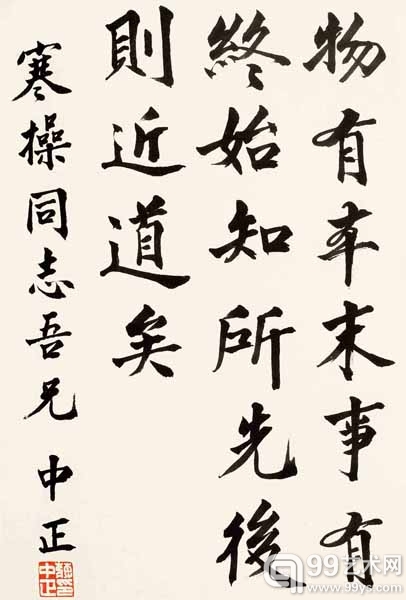 物有本末事有
終始知所先後
則近道矣
寒操同志吾兄 中正
99艺术网
www.99ys.com